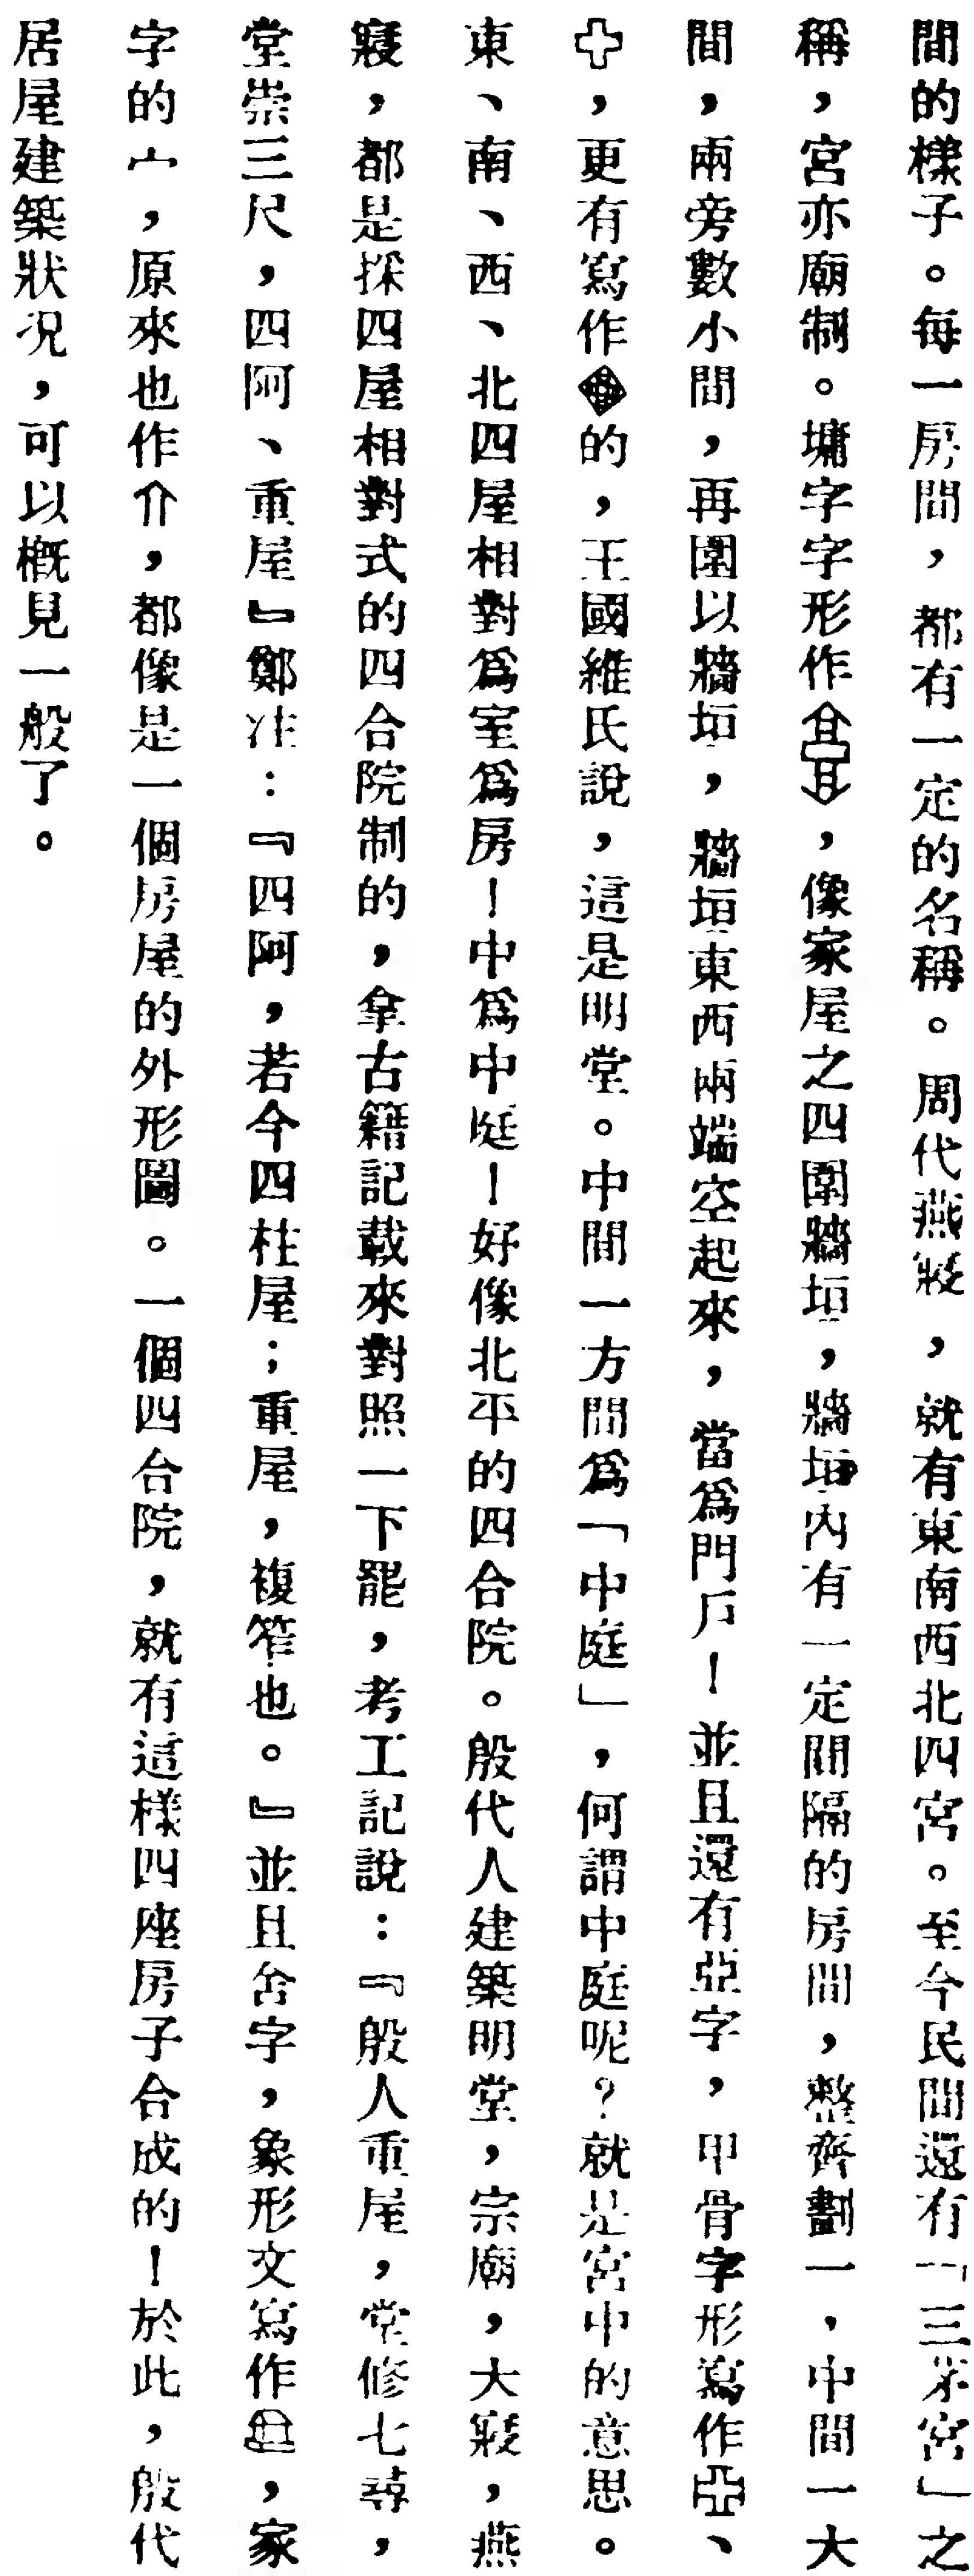 間的樣子。每一房間，都有一定的名稱。周代燕寢，就有東南西北四宮。至今民間還有「三茅宮」之
稱，宮亦廟制。墉字字形作，像家屋之四圍牆垣，牆垣內有一定間隔的房間，整齊劃一，中間一大
間，兩旁數小間，再圍以牆垣，牆垣東西兩端空起來，當爲門戶！並且還有亞字，甲骨字形寫作、
，更有寫作的，王國維氏說，這是明堂。中間一方間爲「中庭」，何謂中庭呢？就是宮中的意思。
東、南、西、北四屋相對爲室爲房！中爲中庭！好像北平的四合院。殷代人建築明堂，宗廟，大寢，燕
寢，都是採四屋相對式的四合院制的，拿古籍記載來對照一下罷，考工記說：『殷人重屋，堂修七尋，
堂崇三尺，四阿、重屋』鄭注：『四阿，若今四柱屋；重屋，複笮也。』並且舍字，象形文寫作，家
字的宀，原來也作介，都像是一個房屋的外形圖。一個四合院，就有這樣四座房子合成的！於此，殷代
居屋建築狀况，可以概見一般了。